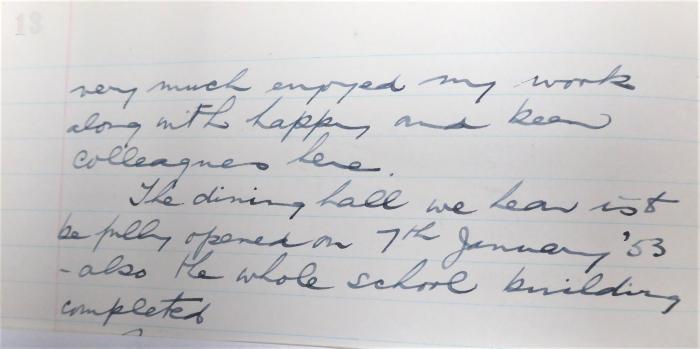 13
very much enjoyed my work
along with happy and keen
colleagues here.
The dining hall we hear is to
be fully opened on 7th January '53
- also the whole school building
completed